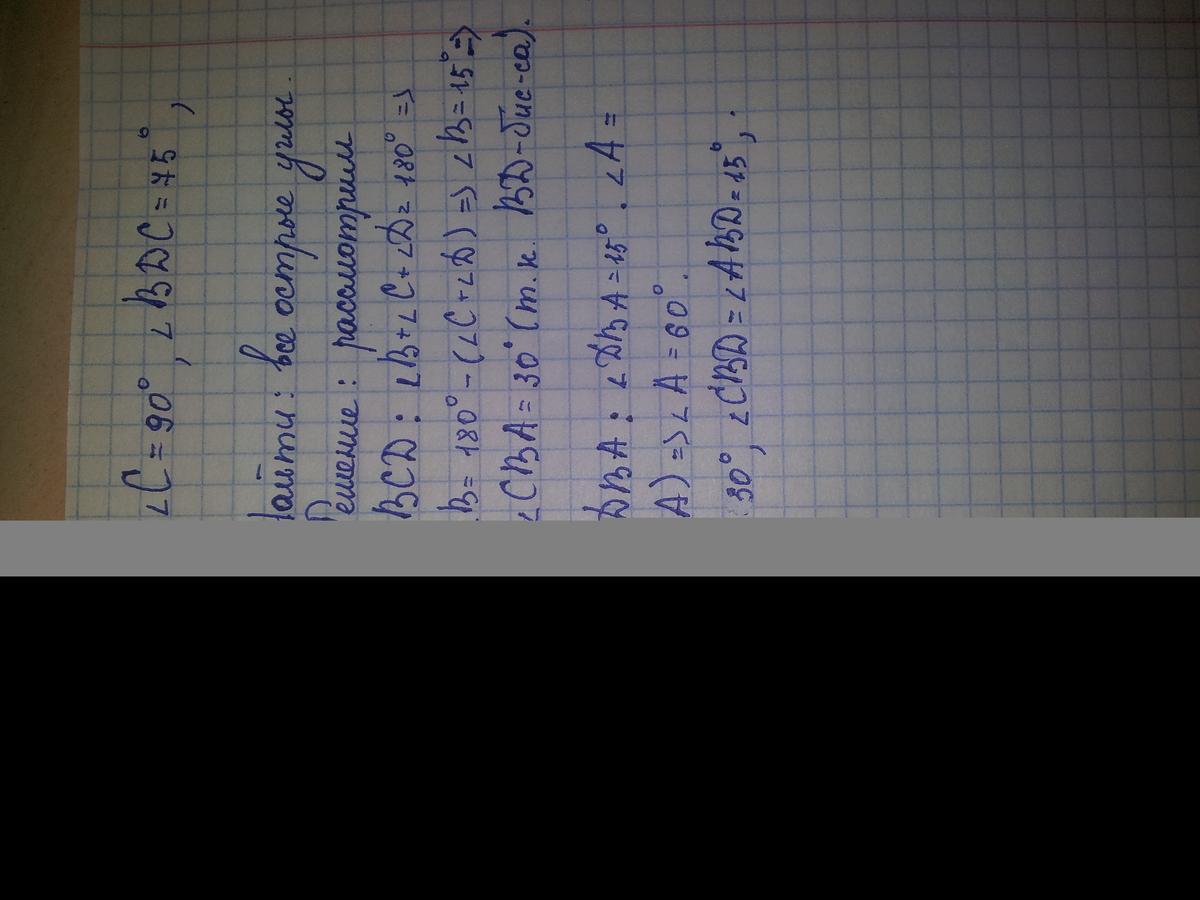 ∠C = 90°, ∠BDC = 75°,
Найти: все острые углы.
Решение: рассмотрим
BCD: ∠B + ∠C + ∠D = 180° =>
B = 180° - (∠C + ∠D) => ∠B = 15° =>
∠CBA = 30° (т.к. BD - бис-са).
DBA: ∠DBA = 15°. ∠A =
A) => ∠A = 60°.
30°, ∠CBD = ∠ABD = 15°, .